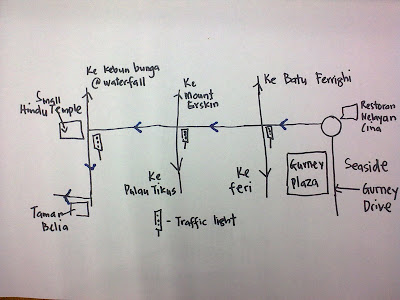 Ke Kebun bunga
@ waterfall
Ke
Mount
Erskin
Ke Batu Ferrighi
Small
Hindu Temple
Restoran
Nelayan
Cina
Ke
Pulau Tikus
Ke
feri
Gurney
Plaza
Seaside
Gurney
Drive
Taman
Belia
- Traffic light